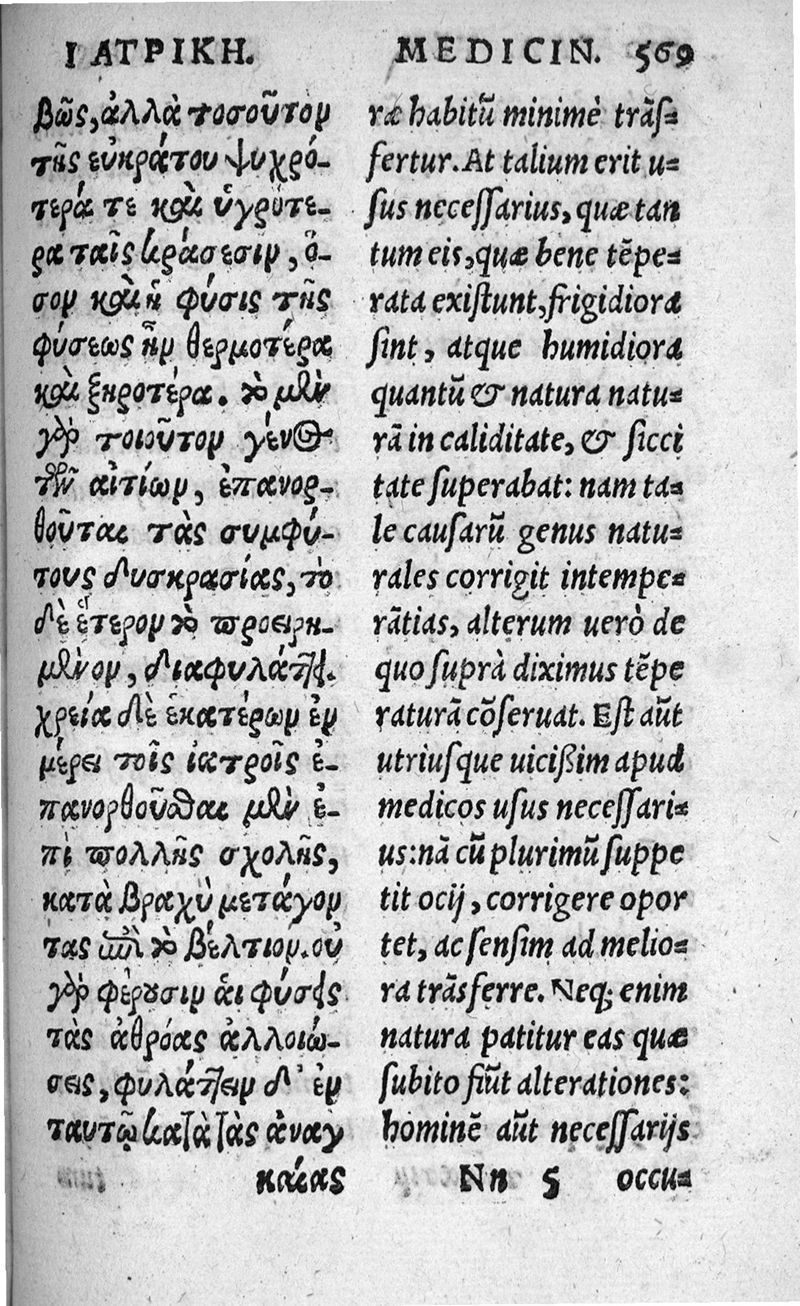 ΙΑΤΡΙΚΗ.
βῶς, ἀλλὰ τοσοῦτον
τῆς εὐκράτου ψυχρό-
τερά τε καὶ ὑγρότε-
ρα ταῖς κράσεσιν, ὅ-
σον καὶ ἡ φύσις τῆς
φύσεως ἦν θερμοτέρα
καὶ ξηροτέρα. τὸ μὲν
γὰρ τοιοῦτον γένος
τῶν αἰτίων, ἐπανορ-
θοῦται τὰς συμφύ-
τους δυσκρασίας, τὸ
δὲ ἕτερον τὸ προειρη-
μένον, διαφυλάττει.
χρεία δὲ ἑκατέρων ἐν
μέρει τοῖς ἰατροῖς ἐ-
πανορθοῦσθαι μὲν ἐ-
πὶ πολλῆς σχολῆς,
κατὰ βραχὺ μετάγον
τας ἐπὶ τὸ βέλτιον. οὐ
γὰρ φέρουσιν ἁι φύσεις
τὰς ἀθρόας ἀλλοιώ-
σεις, φυλάττειν δ' ἐν
ταυτῷ κατὰ τὰς ἀναγ
καίας
MEDICIN. 569
ræ habitũ minimè trãs-
fertur. At talium erit u-
sus necessarius, quæ tan
tum eis, quæ bene tẽpe-
rata existunt, frigidiora
sint, atque humidiora
quantũ & natura natu-
rã in caliditate, & sicci
tate superabat: nam ta-
le causarũ genus natu-
rales corrigit intempe-
rãtias, alterum uerò de
quo suprà diximus tẽpe
raturã cõseruat. Est aũt
utriusque uicißim apud
medicos usus necessari-
us: nã cũ plurimũ suppe
tit ocij, corrigere opor
tet, ac sensim ad melio-
ra trãsferre. Neq; enim
natura patitur eas quæ
subito fiũt alterationes:
hominẽ aũt necessarijs
Nn 5 occu-